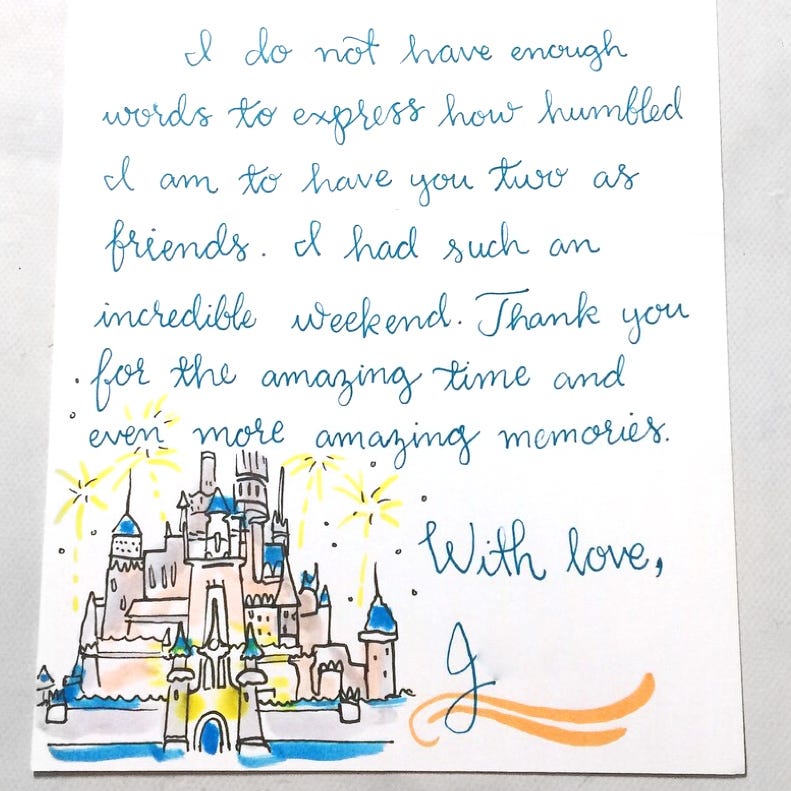 I do not have enough
words to express how humbled
I am to have you two as
friends. I had such an
incredible weekend. Thank you
for the amazing time and
even more amazing memories.
With love,
J